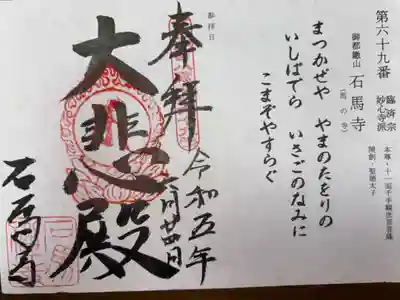 第六十九番
臨済宗
妙心寺派
本尊・十一面千手観世音菩薩
開創・聖徳太子
御都繖山 石馬寺
まつかぜや やまのたをりの
いしばでら いさごのなみに
こまぞやすらぐ
参拝日
奉拝
令和五年
二月廿四日
大悲殿
石馬寺